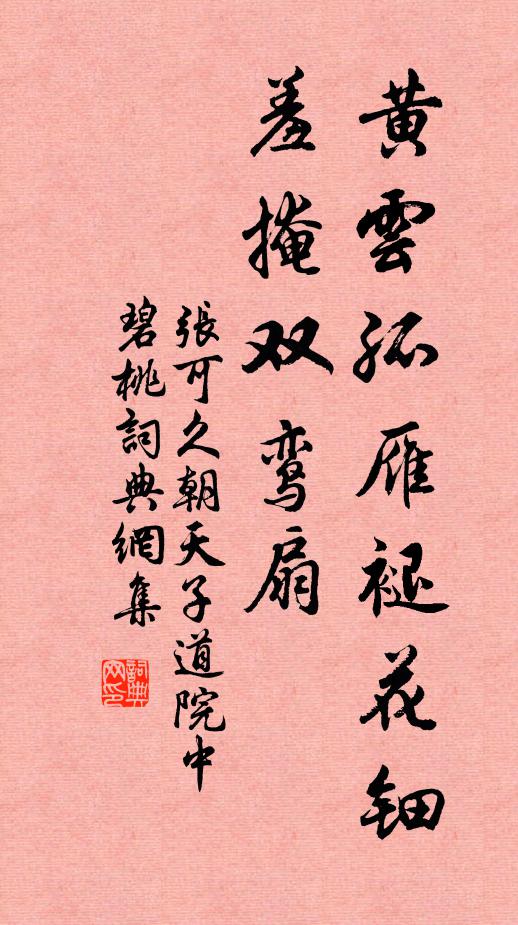 黄雲孤雁褪花钿
羞掩双鸾扇
張可久朝天子道院中
碧桃詞典網集
詞典网印